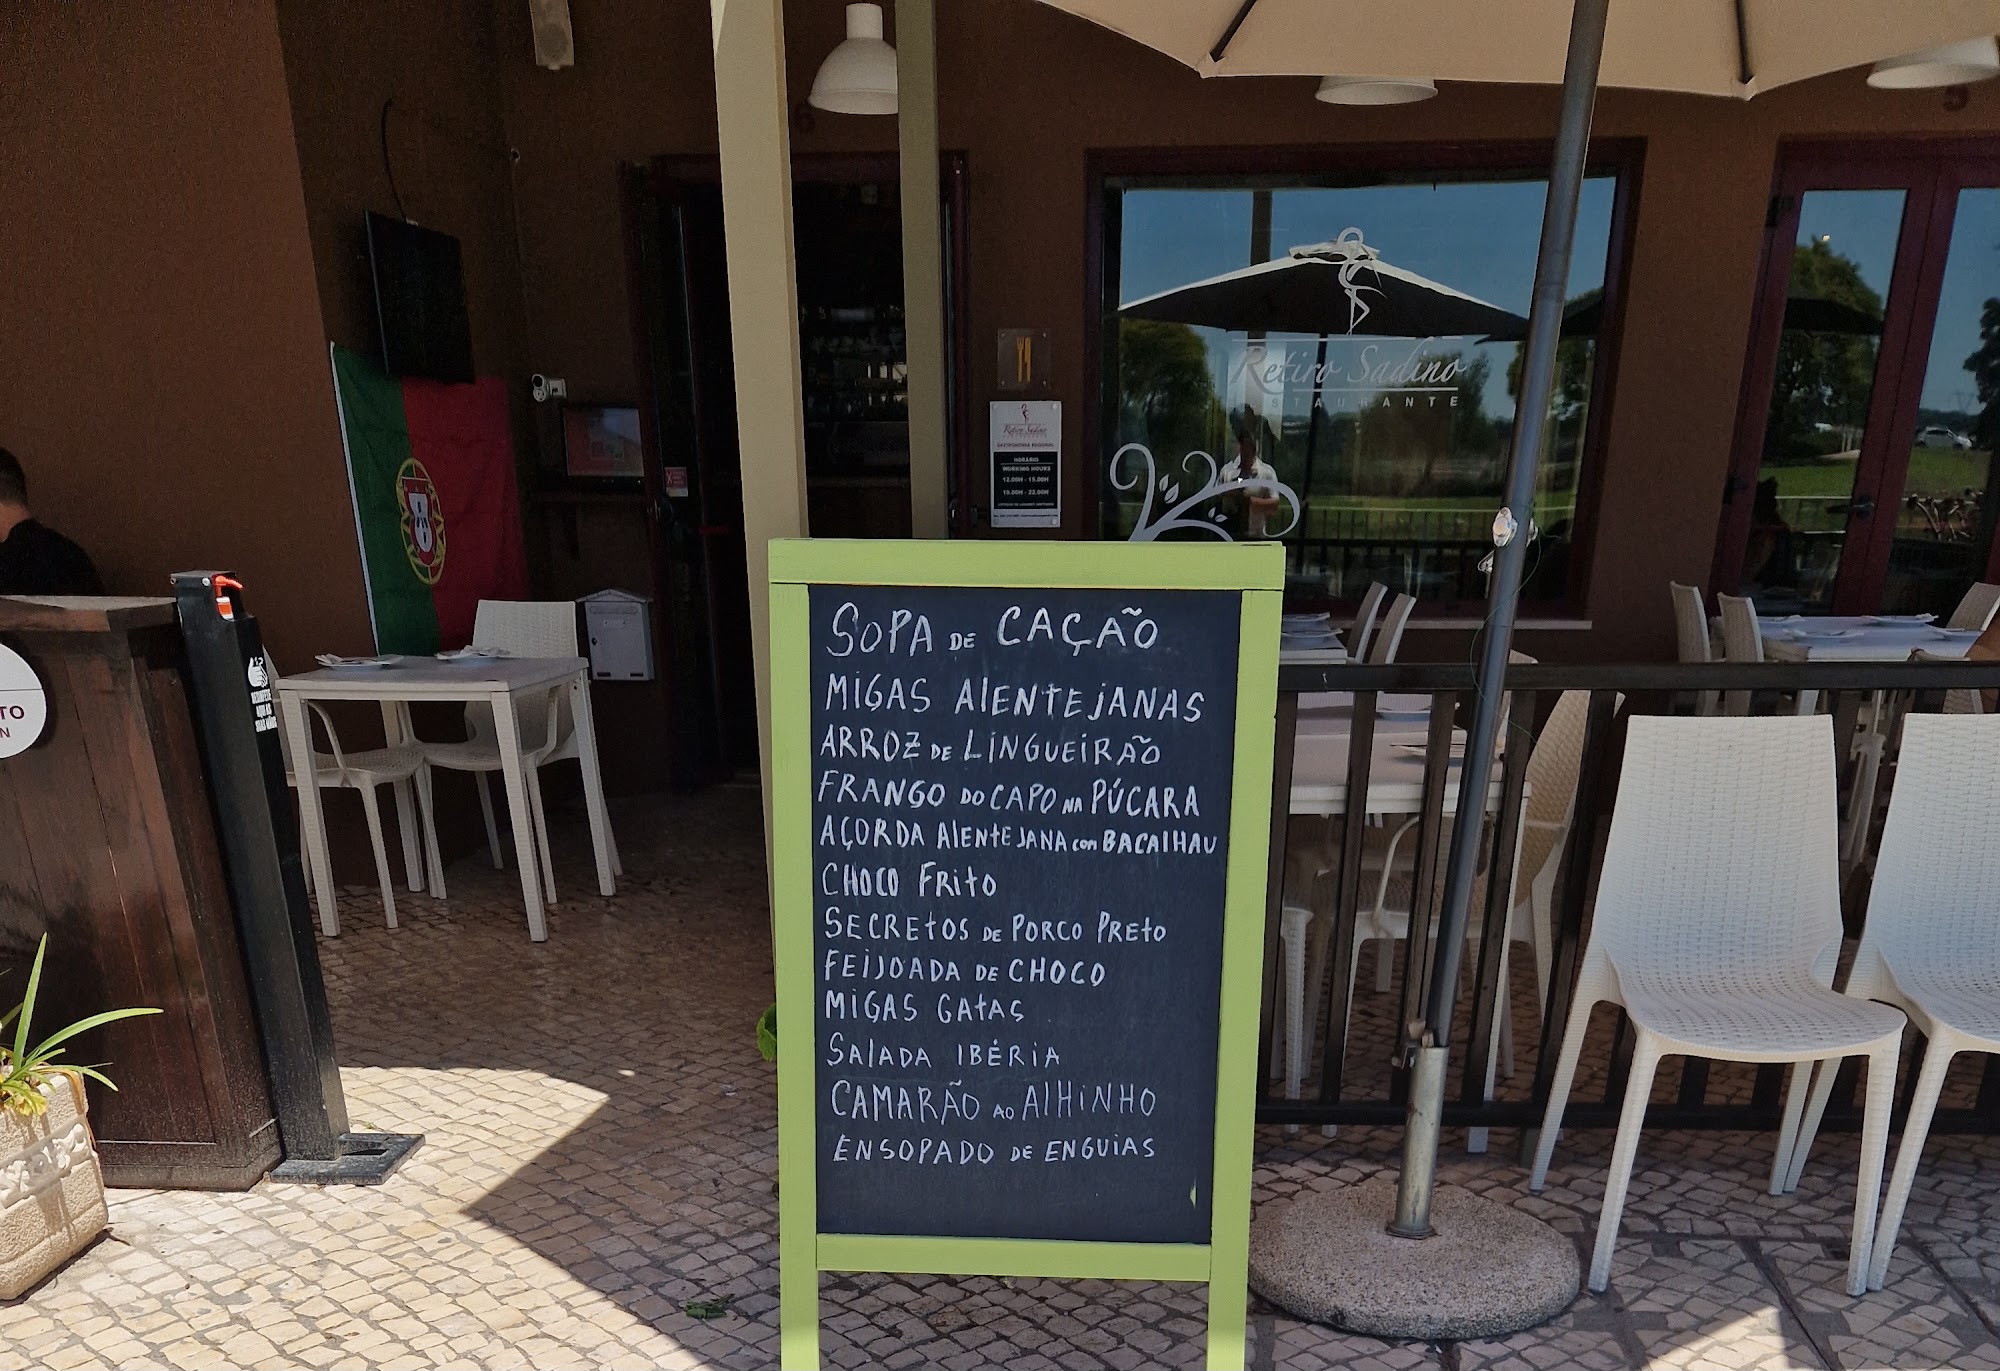 Retiro Sadino
STAURANTE
Retiro Sadino
GASTRONOMIA REGIONAL
HORÁRIO
WORKING HOURS
12.00H - 15.00H
19.00H - 22.00H
TO
N
SOPA DE CAÇÃO
MIGAS AlENTEjANAS
ARROZ DE LINGUEIRÃO
FRANGO DO CAPO NA PÚCARA
AÇORDA AlENTEJANA com BACAlHAU
CHOCO FRitO
SECREtOS DE PORCO PREtO
FEIJOADA DE CHOCO
MiGAS GAtAS
SAlADA IBÉRiA
CAMARÃO AO AlHiNHO
ENSOPADO DE ENGUiAS